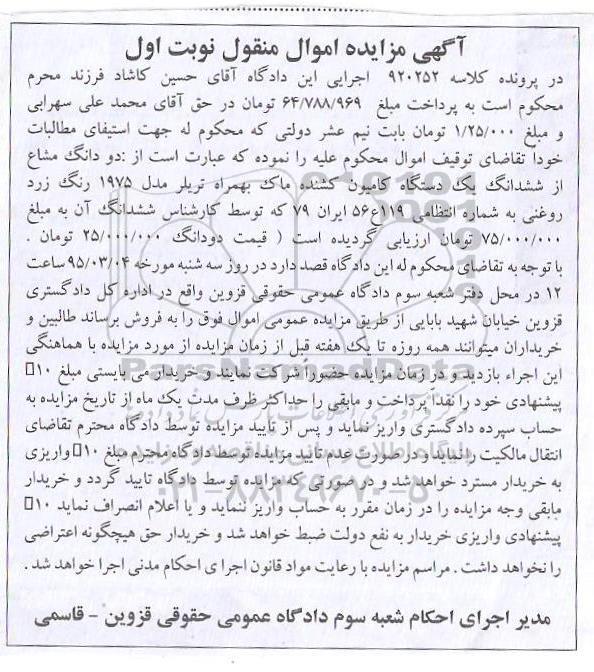 آگهی مزایده اموال منقول نوبت اول
در پرونده کلاسه ۹۲۰۲۵۲ اجرایی این دادگاه آقای حسین کاشاد فرزند محرم
محکوم است به پرداخت مبلغ ۶۴/۷۸۸/۹۶۹ تومان در حق آقای محمد علی سهرابی
و مبلغ ۱/۲۵/۰۰۰ تومان بابت نیم عشر دولتی که محکوم له جهت استیفای مطالبات
خودا تقاضای توقیف اموال محکوم علیه را نموده که عبارت است از :دو دانگ مشاع
از ششدانگ یک دستگاه کامیون کشنده ماک بهمراه تریلر مدل ۱۹۷۵ رنگ زرد
روغنی به شماره انتظامی ۱۱۹ع۵۶ ایران ۷۹ که توسط کارشناس ششدانگ آن به مبلغ
۷۵/۰۰۰/۰۰۰ تومان ارزیابی گردیده است ( قیمت دودانگ ۲۵/۰۰۰/۰۰۰ تومان .
با توجه به تقاضای محکوم له این دادگاه قصد دارد در روز سه شنبه مورخه ۹۵/۰۳/۰۴ ساعت
۱۲ در محل دفتر شعبه سوم دادگاه عمومی حقوقی قزوین واقع در اداره کل دادگستری
قزوین خیابان شهید بابایی از طریق مزایده عمومی اموال فوق را به فروش برساند طالبین و
خریداران میتوانند همه روزه تا یک هفته قبل از زمان مزایده از مورد مزایده با هماهنگی
این اجراء بازدید و در زمان مزایده حضوراً شرکت نمایند و خریدار می بایستی مبلغ ۱۰□
پیشنهادی خود را نقداً پرداخت و مابقی را حداکثر ظرف مدت یک ماه از تاریخ مزایده به
حساب سپرده دادگستری واریز نماید و پس از تایید مزایده توسط دادگاه محترم تقاضای
انتقال مالکیت را بنماید و در صورت عدم تایید مزایده توسط دادگاه محترم مبلغ ۱۰□ واریزی
به خریدار مسترد خواهد شد و در صورتی که مزایده توسط دادگاه تایید گردد و خریدار
مابقی وجه مزایده را در زمان مقرر به حساب واریز ننماید و یا اعلام انصراف نماید ۱۰□
پیشنهادی واریزی خریدار به نفع دولت ضبط خواهد شد و خریدار حق هیچگونه اعتراضی
را نخواهد داشت . مراسم مزایده با رعایت مواد قانون اجرا ی احکام مدنی اجرا خواهد شد .
مدیر اجرای احکام شعبه سوم دادگاه عمومی حقوقی قزوین - قاسمی
ParsNamadData
۰۲۱-۸۸۳۴۹۶۷۰-۵